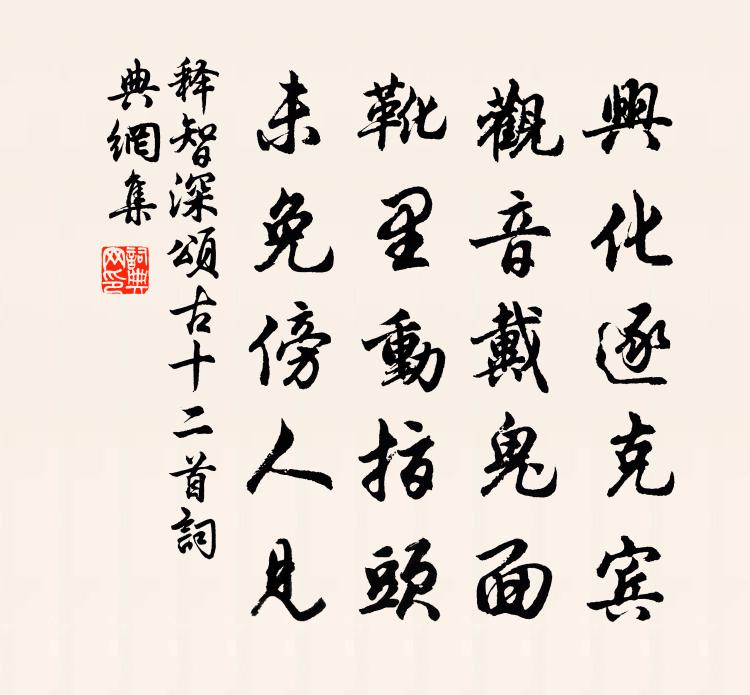 興化逐克宾
觀音戴鬼面
靴里動指頭
未免傍人見
释智深頌古十二首詞
典網集
詞典
网印